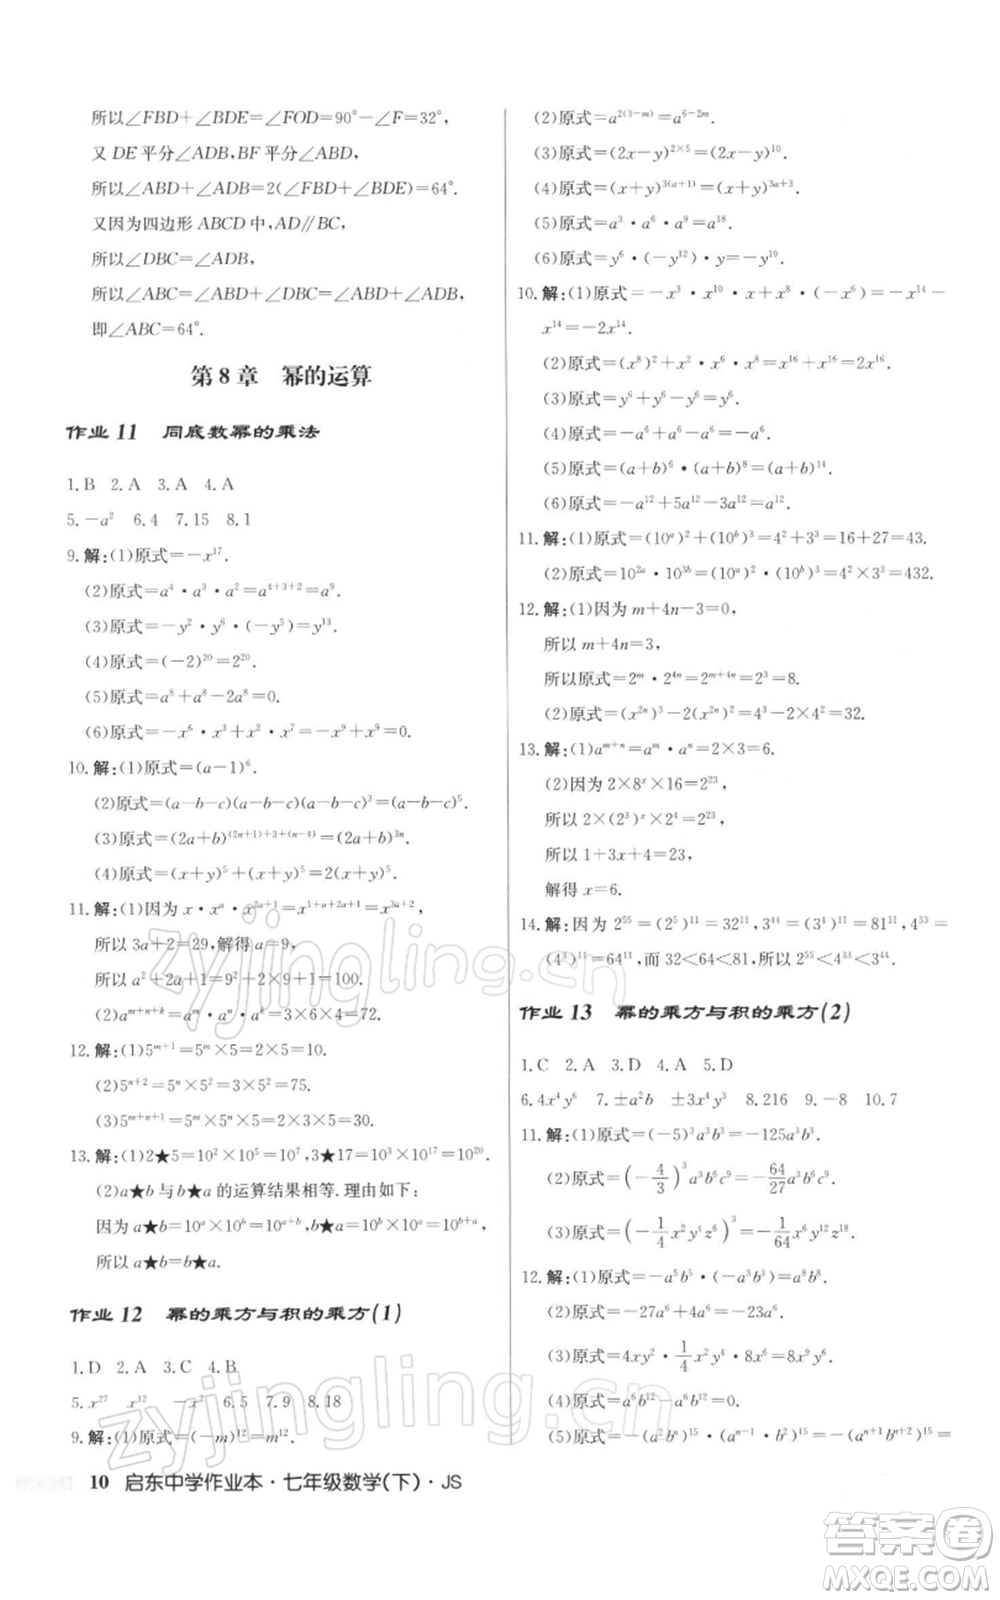 所以∠FBD+∠BDE=∠FOD=90°-∠F=32°,
又 DE 平分∠ADB,BF 平分∠ABD,
所以∠ABD+∠ADB=2(∠FBD+∠BDE)=64°.
又因为四边形 ABCD 中,AD∥BC,
所以∠DBC=∠ADB,
所以∠ABC=∠ABD+∠DBC=∠ABD+∠ADB,
即∠ABC=64°.
第 8 章　幂的运算
作业 11　同底数幂的乘法
1.B　2.A　3.A　4.A
5.-a²　6.4　7.15　8.1
9.解:(1)原式=-x¹⁷.
(2)原式=a⁴·a³·a²=a⁴⁺³⁺²=a⁹.
(3)原式=-y²·y⁶·(-y⁵)=y¹³.
(4)原式=(-2)²⁰=2²⁰.
(5)原式=a⁸+a⁸-2a⁸=0.
(6)原式=-x⁶·x³+x²·x⁷=-x⁹+x⁹=0.
10.解:(1)原式=(a-1)⁶.
(2)原式=(a-b-c)(a-b-c)(a-b-c)³=(a-b-c)⁵.
(3)原式=(2a+b)^{(2n+1)+3+(n-4)}=(2a+b)^{3n}.
(4)原式=(x+y)⁵+(x+y)⁵=2(x+y)⁵.
11.解:(1)因为 x·x^{a}·x^{2a+1}=x^{1+a+2a+1}=x^{3a+2},
所以 3a+2=29,解得 a=9,
所以 a²+2a+1=9²+2×9+1=100.
(2)a^{m+n+k}=a^{m}·a^{n}·a^{k}=3×6×4=72.
12.解:(1)5^{m+1}=5^{m}×5=2×5=10.
(2)5^{n+2}=5^{n}×5²=3×5²=75.
(3)5^{m+n+1}=5^{m}×5^{n}×5=2×3×5=30.
13.解:(1)2★5=10²×10⁵=10⁷,3★17=10³×10¹⁷=10²⁰.
(2)a★b 与 b★a 的运算结果相等.理由如下:
因为 a★b=10^{a}×10^{b}=10^{a+b},b★a=10^{b}×10^{a}=10^{b+a},
所以 a★b=b★a.
作业 12　幂的乘方与积的乘方(1)
1.D　2.A　3.C　4.B
5.x²⁷　x¹²　-x²　6.5　7.9　8.18
9.解:(1)原式=m³ˣ⁴=m¹².
10　启东中学作业本·七年级数学(下)·JS
(2)原式=a^{2(3-m)}=a^{6-2m}.
(3)原式=(2x-y)^{2×5}=(2x-y)¹⁰.
(4)原式=(x+y)^{3(a+1)}=(x+y)^{3a+3}.
(5)原式=a³·a⁶·a⁹=a¹⁸.
(6)原式=y⁶·(-y¹²)·y=-y¹⁹.
10.解:(1)原式=-x³·x¹⁰·x+x⁸·(-x⁶)=-x¹⁴-
x¹⁴=-2x¹⁴.
(2)原式=(x⁸)²+x⁴·x⁴·x⁸=x¹⁶+x¹⁶=2x¹⁶.
(3)原式=y⁶+y⁶-y⁶=y⁶.
(4)原式=2x⁶-x⁶=x⁶.
(5)原式=(a+b)⁶·(a+b)⁸=(a+b)¹⁴.
(6)原式=-a¹²+5a¹²-3a¹²=a¹².
11.解:(1)原式=(10^{a})²+(10^{b})³=4²+3³=16+27=43.
(2)原式=10^{2a}·10^{3b}=(10^{a})²×(10^{b})³=4²×3³=432.
12.解:(1)因为 m+4n-3=0,
所以 m+4n=3,
所以原式=2^{m}·2^{4n}=2^{m+4n}=2³=8.
(2)原式=(x^{2n})³-2(x^{2n})²=4³-2×4²=32.
13.解:(1)a^{m+n}=a^{m}·a^{n}=2×3=6.
(2)因为 2×8^{x}×16=2²³,
所以 2×(2³)^{x}×2⁴=2²³,
所以 1+3x+4=23,
解得 x=6.
14.解:因为 2⁵⁵=(2⁵)¹¹=32¹¹,3⁴⁴=(3⁴)¹¹=81¹¹,4³³=
(4³)¹¹=64¹¹,而 32<64<81,所以 2⁵⁵<4³³<3⁴⁴.
作业 13　幂的乘方与积的乘方(2)
1.C　2.A　3.D　4.A　5.D
6.4x⁴y⁶　7.±a²b　±3x⁴y³　8.216　9.-8　10.7
11.解:(1)原式=(-5)³a³b³=-125a³b³.
(2)原式=(-4/3)³a³b⁶c⁹=-64/27a³b⁶c⁹.
(3)原式=(-1/4x²y⁴z⁶)³=-1/64x⁶y¹²z¹⁸.
12.解:(1)原式=-a⁵b⁵·(-a³b³)=a⁸b⁸.
(2)原式=-27a⁶+4a⁶=-23a⁶.
(3)原式=4xy²·1/4x²y⁴=x³y⁶.
(4)原式=a⁶b¹²-a⁶b¹²=0.
(5)原式=a^{2n}b^{6n}+a^{2n}b^{6n}=2a^{2n}b^{6n}.
zyjingling.cn
zyjingling.cn
答案圈
MXQE.COM